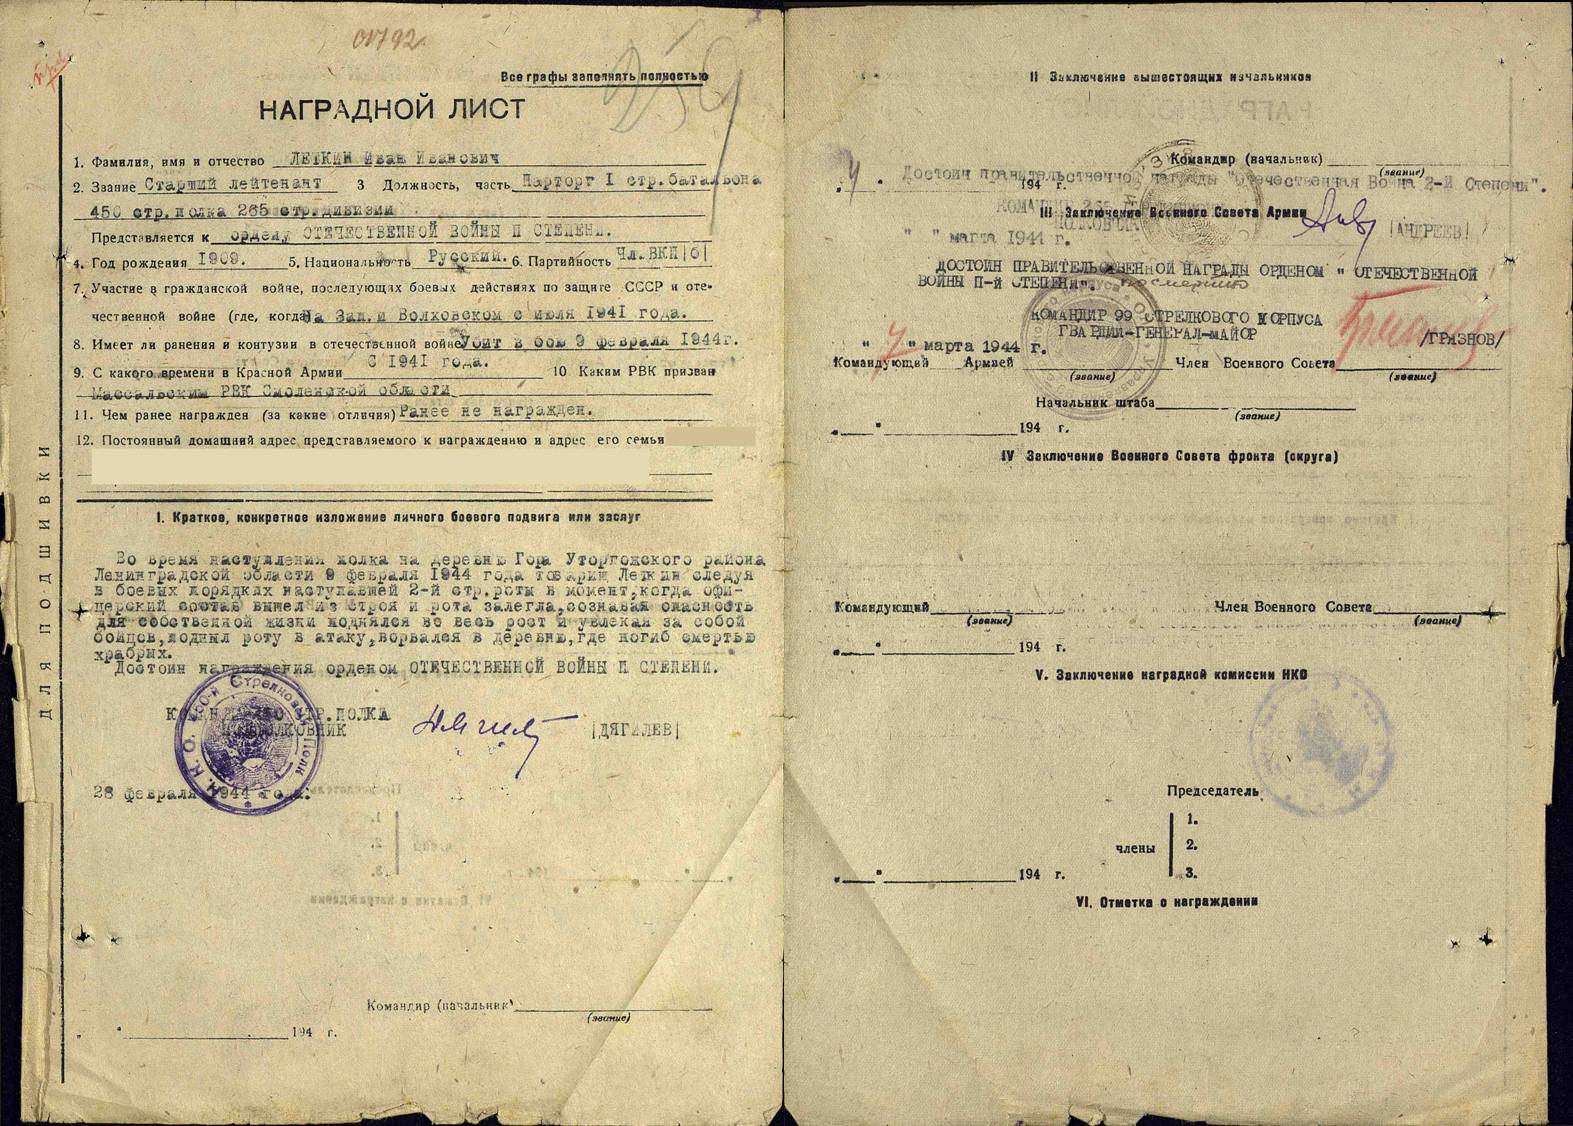 01792
Все графы заполнять полностью
НАГРАДНОЙ ЛИСТ
1. Фамилия, имя и отчество ЛЕТКИН Иван Иванович
2. Звание Старший лейтенант 3 Должность, часть Парторг I стр.батальона
450 стр.полка 265 стр.дивизии
Представляется к ордену ОТЕЧЕСТВЕННОЙ ВОЙНЫ П СТЕПЕНИ.
4. Год рождения 1909. 5. Национальность Русский. 6. Партийность Чл.ВКП|б|
7. Участие в гражданской войне, последующих боевых действиях по защите СССР и оте-
чественной войне (где, когда) На Зап.и Волховском с июля 1941 года.
8. Имеет ли ранения и контузии в отечественной войне Убит в бою 9 февраля 1944г.
9. С какого времени в Красной Армии С 1941 года. 10 Каким РВК призван
Массальским РВК Смоленской области
11. Чем ранее награжден (за какие отличия) Ранее не награжден.
12. Постоянный домашний адрес представляемого к награждению и адрес его семьи
I. Краткое, конкретное изложение личного боевого подвига или заслуг
Во время наступления полка на деревню Гора Уторгожского района
Ленинградской области 9 февраля 1944 года товарищ Леткин следуя
в боевых порядках наступавшей 2-й стр.роты в момент,когда офи-
церский состав вышел из строя и рота залегла,сознавая опасность
для собственной жизни поднялся во весь рост и увлекая за собой
бойцов,поднял роту в атаку,ворвался в деревню,где погиб смертью
храбрых.
Достоин награждения орденом ОТЕЧЕСТВЕННОЙ ВОЙНЫ П СТЕПЕНИ.
КОМАНДИР 450 СТР.ПОЛКА
ПОДПОЛКОВНИК |ДЯГИЛЕВ|
Н. К. О. 450-й Стрелковый Полк
28 февраля 1944 года.
Командир (начальник)
(звание)
" 194 г.
ДЛЯ ПОДШИВКИ
II Заключение вышестоящих начальников
Командир (начальник)
(звание)
194 г.
Достоин правительственной награды "Отечественная Война 2-й Степени".
КОМАНДИР 265
III Заключение Военного Совета Армии
|АНДРЕЕВ|
" " марта 1944 г.
ДОСТОИН ПРАВИТЕЛЬСТВЕННОЙ НАГРАДЫ ОРДЕНОМ " ОТЕЧЕСТВЕННОЙ
ВОЙНЫ П-й СТЕПЕНИ". посмертно
КОМАНДИР 99 СТРЕЛКОВОГО КОРПУСА
ГВАРДИИ-ГЕНЕРАЛ-МАЙОР
/ГРЯЗНОВ/
" 7 " марта 1944 г.
Командующий Армией Член Военного Совета
(звание) (звание)
Начальник штаба
(звание)
" " 194 г.
IV Заключение Военного Совета фронта (округа)
Командующий Член Военного Совета
(звание) (звание)
" " 194 г.
V. Заключение наградной комиссии НКО
Председатель
1.
члены 2.
3.
" " 194 г.
VI. Отметка о награждении